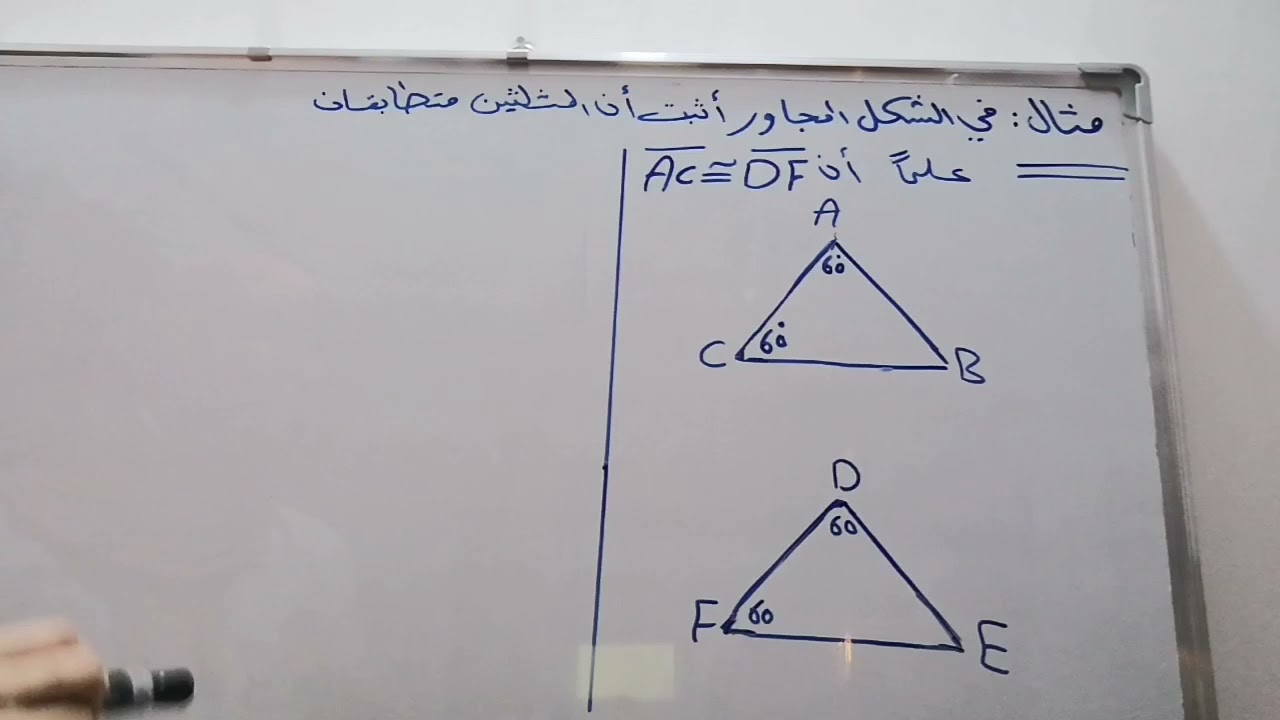 مثال: في الشكل المجاور أثبت أن المثلثين متطابقان
علماً أن AC ≅ DF
A
60°
60°
C
B
D
60
60
F
E